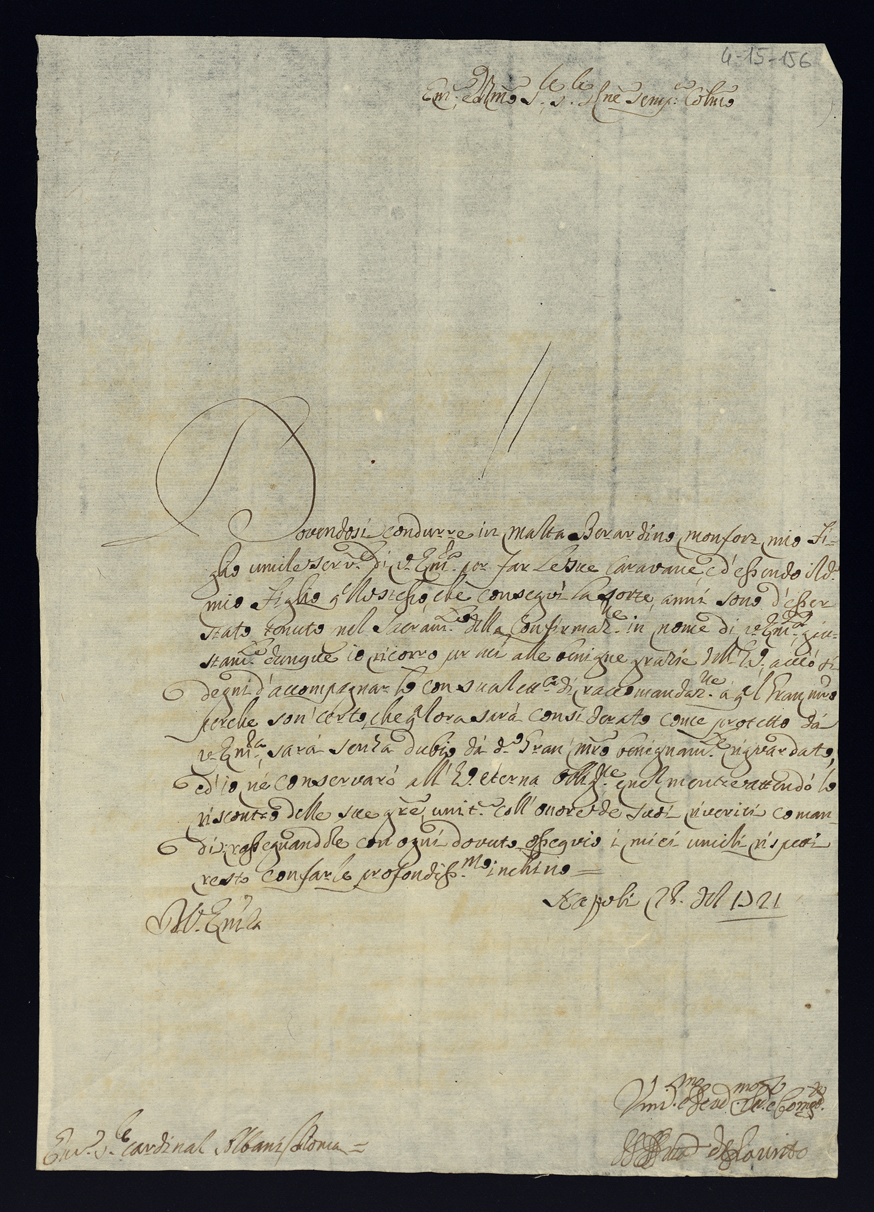 4-15-156
Em.o e Rmo S.r S.r Pne Semp.e Colmo
Dovendosi condurre in Malta Berardino Monforz mio Fi-
glio umile serv.e di V. Em.za per far le sue Caravane, ed' essendo
mio Figlio q.llo stesso che conseguì la sorte, anni sono d'esser
stato tenuto nel Sacram.to della Confirmaz.ne in nome di V. Em.za, giu-
stam.te dunque io ricorro per lui alle benigne grazie dell' E.V. acciò si
degni d'accompagnarlo con sua lett.ra di raccomandaz.ne à q.l Gran mro
perche son certo, che q.llora sarà considerato come protetto dà
V. Em.za, sarà senza dubio dà d.o Gran mro benignam.te riguardato,
ed' io né conservarò all' E.V. eterna obblig.ne, quell mentre attendo lo
riscontro delle sue gre unit.e coll' onore de suoi riveriti coman-
di, rassegnandole con ogni dovuto ossequio i miei umili rispetti
resto con farle profondiss.mo inchino =
Napoli 28. 1721
Di V. Em.za
Um.mo e Dev.mo
di Laurito
Em.o S.r Cardinal Albani Roma =